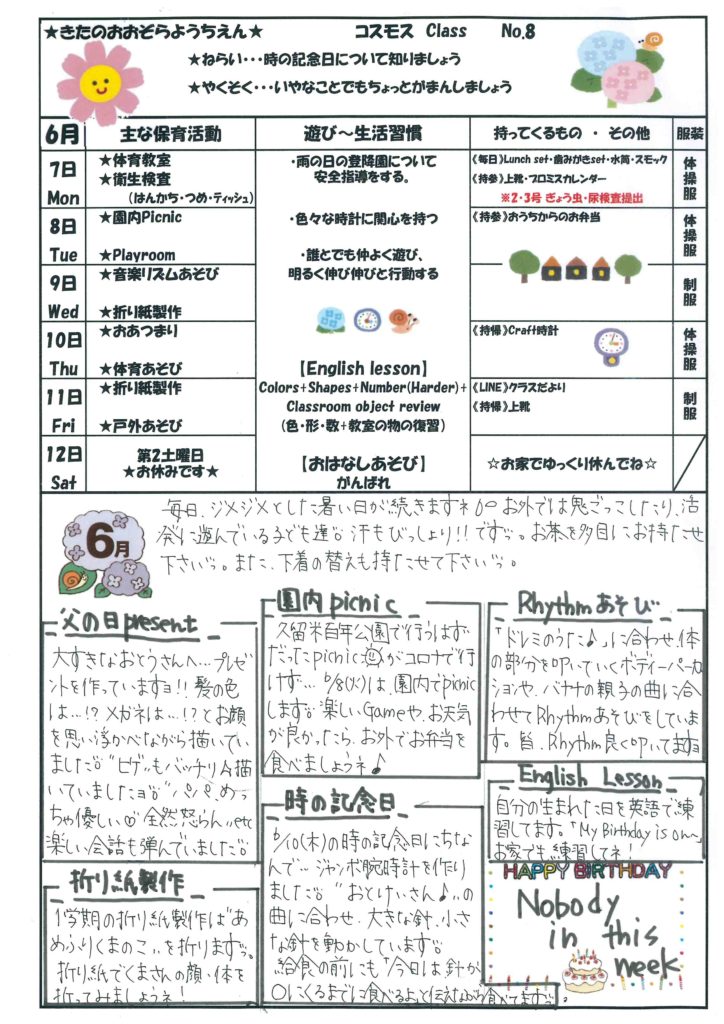 ★きたのおおぞらようちえん★ コスモス Class No.8
★ねらい・・・時の記念日について知りましょう
★やくそく・・・いやなことでもちょっとがまんしましょう
6月 主な保育活動 遊び～生活習慣 持ってくるもの ・ その他 服装
7日 Mon
★体育教室
★衛生検査
(はんかち・つめ・ティッシュ)
・雨の日の登降園について
安全指導をする。
《毎日》Lunch set・歯みがきset・水筒・スモック
《持参》上靴・プロミスカレンダー
※2・3号 ぎょう虫・尿検査提出
体操服
8日 Tue
★園内Picnic
★Playroom
・色々な時計に関心を持つ
・誰とでも仲よく遊び、
明るく伸び伸びと行動する
《持参》おうちからのお弁当
体操服
9日 Wed
★音楽リズムあそび
★折り紙製作
制服
10日 Thu
★おあつまり
★体育あそび
《持帰》Craft時計
体操服
11日 Fri
★折り紙製作
★戸外あそび
【English lesson】
Colors+Shapes+Number(Harder)+
Classroom object review
(色・形・数+教室の物の復習)
《LINE》クラスだより
《持帰》上靴
制服
12日 Sat
第2土曜日
★お休みです★
【おはなしあそび】
がんばれ
☆お家でゆっくり休んでね☆
6月
毎日、ジメジメとした暑い日が続きますネ お外では鬼ごっこしたり、活
発に遊んでいる子ども達。汗もびっしょり!!です。お茶を多目にお持たせ
下さい。また、下着の替えも持たせて下さい。
父の日present
大すきなおとうさんへ…プレゼ
ントを作っていますョ!! 髪の色
は…!?メガネは…!?とお顔
を思い浮かべながら描いてい
ました。"ヒゲ"もバッチリ描
いていましたョ。"パパ、めっ
ちゃ優しい♡ 全然怒らん"etc
楽しい会話も弾んでいました。
折り紙製作
1学期の折り紙製作は"あ
めふりくまのこ"を折ります。
折り紙でくまさんの顔・体を
折ってみましょうネ!
園内picnic
久留米百年公園で行うはず
だったpicnicがコロナで行
けず… 6/8(火)は、園内でpicnic
します。楽しいGameや、お天気
が良かったら、お外でお弁当を
食べましょうネ♪
時の記念日
6/10(木)の時の記念日にちな
んで…ジャンボ腕時計を作り
ました。"おとけいさん♪"の
曲に合わせ、大きな針、小さ
な針を動かしています。
給食の前にも「今日は針が
〇にくるまでに食べるよ」と伝えながら食べてます。
Rhythmあそび
「ドレミのうた♪」に合わせ、体
の部分を叩いていくボディーパーカッ
ションや、バナナの親子の曲に合
わせてRhythmあそびをしていま
す。皆、Rhythm良く叩いてますョ
English Lesson
自分の生まれた日を英語で練
習してます。「My Birthday is on~」
お家でも練習してネ!
HAPPY BIRTHDAY
Nobody
in this
week